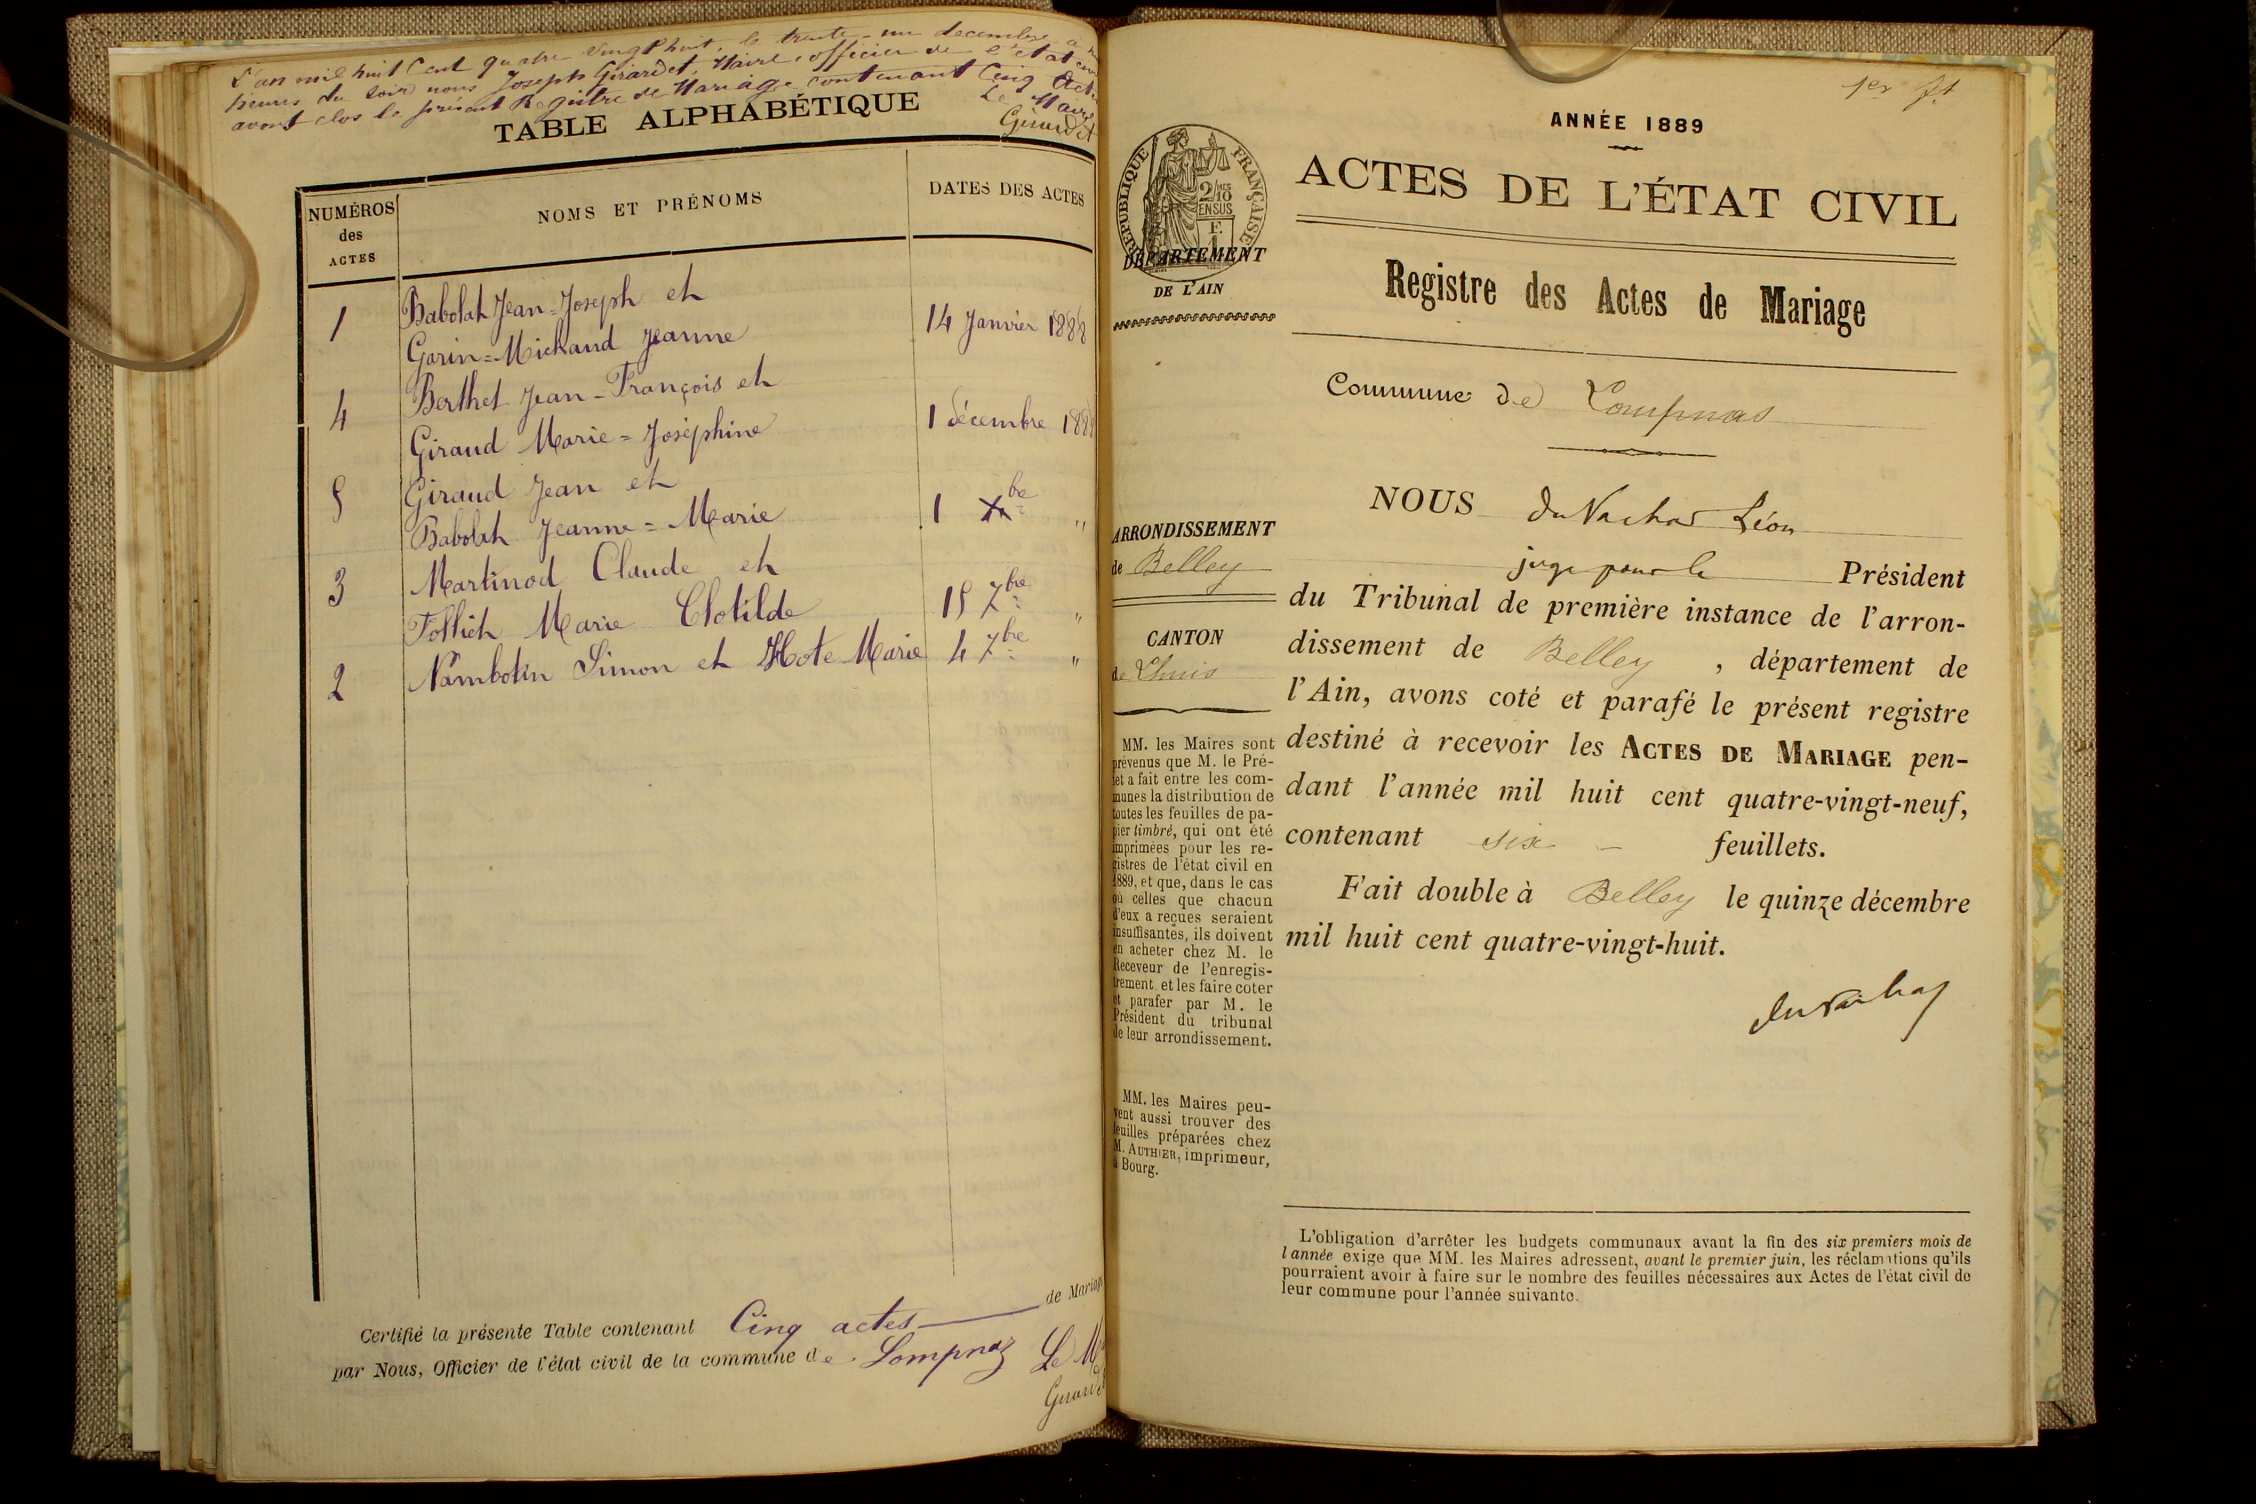 L'an mil huit cent quatre vingt huit, le trente-un decembre à
heures du soir nous Joseph Girardet, Maire, officier de l'état
avons clos le présent Registre de Mariage contenant Cinq Actes
Le Maire
Girardet
TABLE ALPHABÉTIQUE
NUMÉROS
des
ACTES
NOMS ET PRÉNOMS
DATES DES ACTES
1
Babolat Jean-Joseph et
Gorin=Michaud Jeanne
14 Janvier 1888
4
Berthet Jean-François et
Giraud Marie=Joséphine
1 décembre 1888
5
Giraud Jean et
Babolat Jeanne=Marie
1 Xbre "
3
Martinod Claude et
Follich Marie Clotilde
15 7bre "
2
Nambotin Simon et Hote Marie
4 7bre "
Certifié la présente Table contenant Cinq actes de Mariage
par Nous, Officier de l'état civil de la commune de Lompnaz Le
Girardet
1er ft
ANNÉE 1889
ACTES DE L'ÉTAT CIVIL
RÉPUBLIQUE FRANÇAISE
2/10 MES
EN SUS
F.
1
DÉPARTEMENT
DE L'AIN
Registre des Actes de Mariage
Commune de Lompnas
ARRONDISSEMENT
de Belley
CANTON
de Lhuis
MM. les Maires sont
prévenus que M. le Pré-
fet a fait entre les com-
munes la distribution de
toutes les feuilles de pa-
pier timbré, qui ont été
imprimées pour les re-
gistres de l'état civil en
1889, et que, dans le cas
où celles que chacun
d'eux a reçues seraient
insuffisantes, ils doivent
en acheter chez M. le
Receveur de l'enregis-
trement et les faire coter
et parafer par M. le
Président du tribunal
de leur arrondissement.
MM. les Maires peu-
vent aussi trouver des
feuilles préparées chez
M. AUTHIER, imprimeur,
à Bourg.
NOUS du Vachat Léon
juge pour le Président
du Tribunal de première instance de l'arron-
dissement de Belley, département de
l'Ain, avons coté et parafé le présent registre
destiné à recevoir les ACTES DE MARIAGE pen-
dant l'année mil huit cent quatre-vingt-neuf,
contenant six feuillets.
Fait double à Belley le quinze décembre
mil huit cent quatre-vingt-huit.
du Vachat
L'obligation d'arrêter les budgets communaux avant la fin des six premiers mois de
l'année exige que MM. les Maires adressent, avant le premier juin, les réclamations qu'ils
pourraient avoir à faire sur le nombre des feuilles nécessaires aux Actes de l'état civil de
leur commune pour l'année suivante.